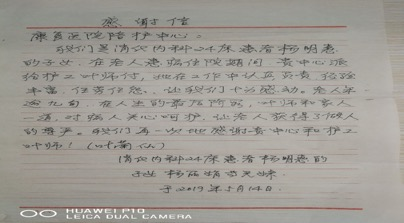 感谢信
康复医院陪护中心：
我们是消化内科24床患者杨明惠
的子女，在老人患病住院期间，贵中心派
给护工叶师付，她在工作中认真负责经验
丰富，任劳任怨，让我们十分感动。老人年
逾九旬，在人生的最后阶段，叶师和家人
一道，对病人关心呵护，让老人获得了做人
的尊严。我们再一次地感谢贵中心和护工
叶师！（叶菊仙）
消化内科24床患者杨明惠的
子女 杨
于2019年5月14日.
HUAWEI P10
LEICA DUAL CAMERA